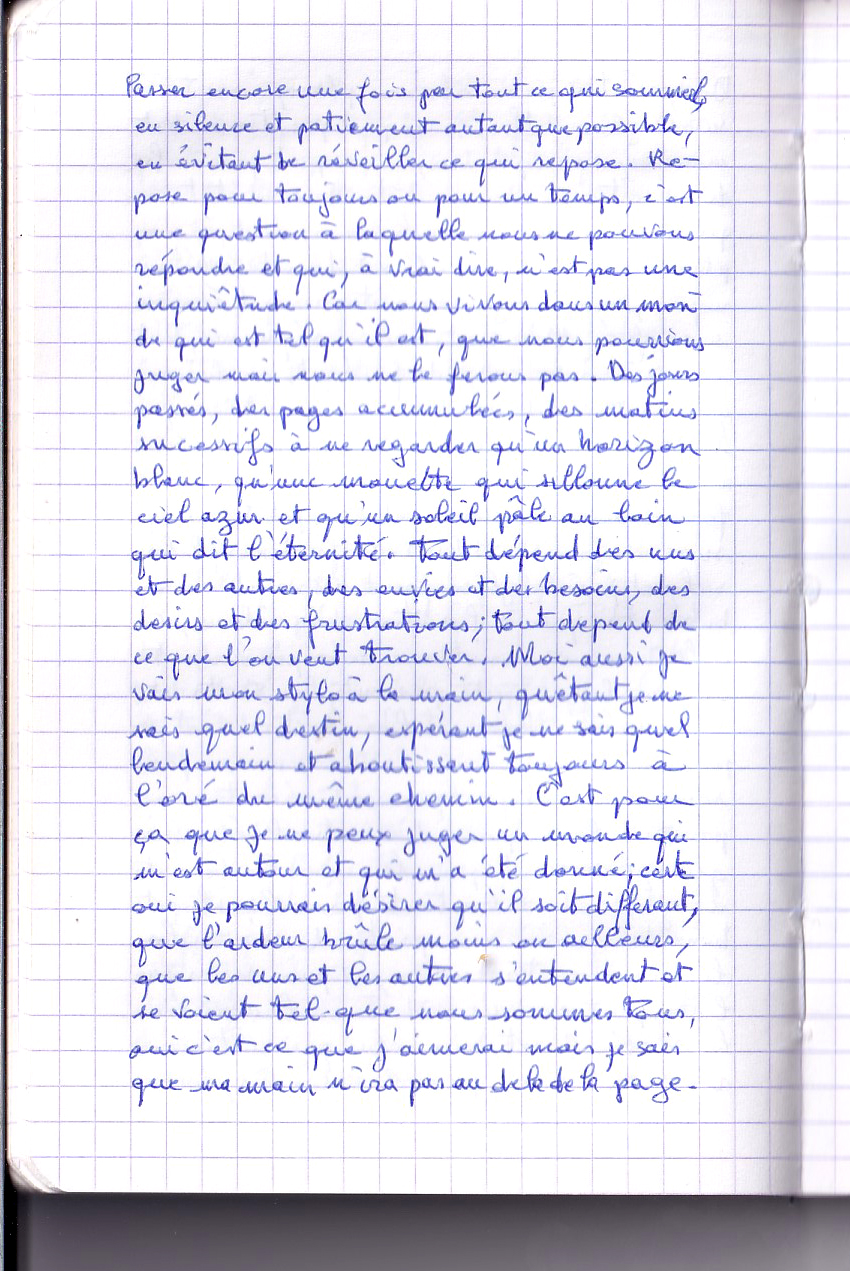 Passer encore une fois par tout ce qui sommeil,
en silence et patiemment autant que possible,
en évitant de réveiller ce qui repose. Re-
pose pour toujours ou pour un temps, c'est
une question à laquelle nous ne pouvons
répondre et qui, à vrai dire, n'est pas une
inquiêtude. Car nous vivons dans un mon
de qui est tel qu'il est, que nous pourrions
juger mais nous ne le ferons pas. Des jours
passés, des pages accumulées, des matins
sucessifs à ne regarder qu'un horizon
blanc, qu'une mouette qui sillonne le
ciel azur et qu'un soleil pâle au loin
qui dit l'éternité. Tout dépend des uns
et des autres, des envies et des besoins, des
desirs et des frustrations; tout depend de
ce que l'on veut trouver. Moi aussi je
vais mon stylo à la main, quêtant je ne
sais quel destin, espérant je ne sais quel
lendemain et aboutissent toujours à
l'oré du même chemin. C'est pour
ça que je ne peux juger un monde qui
m'est autour et qui m'a été donné; certe
oui je pourrais désirer qu'il soit differant,
que l'ardeur brûle moins ou ailleurs,
que les uns et les autres s'entendent et
se voient tel-que nous sommes tous,
oui c'est ce que j'aimerai mais je sais
que ma main n'ira pas au dela de la page.